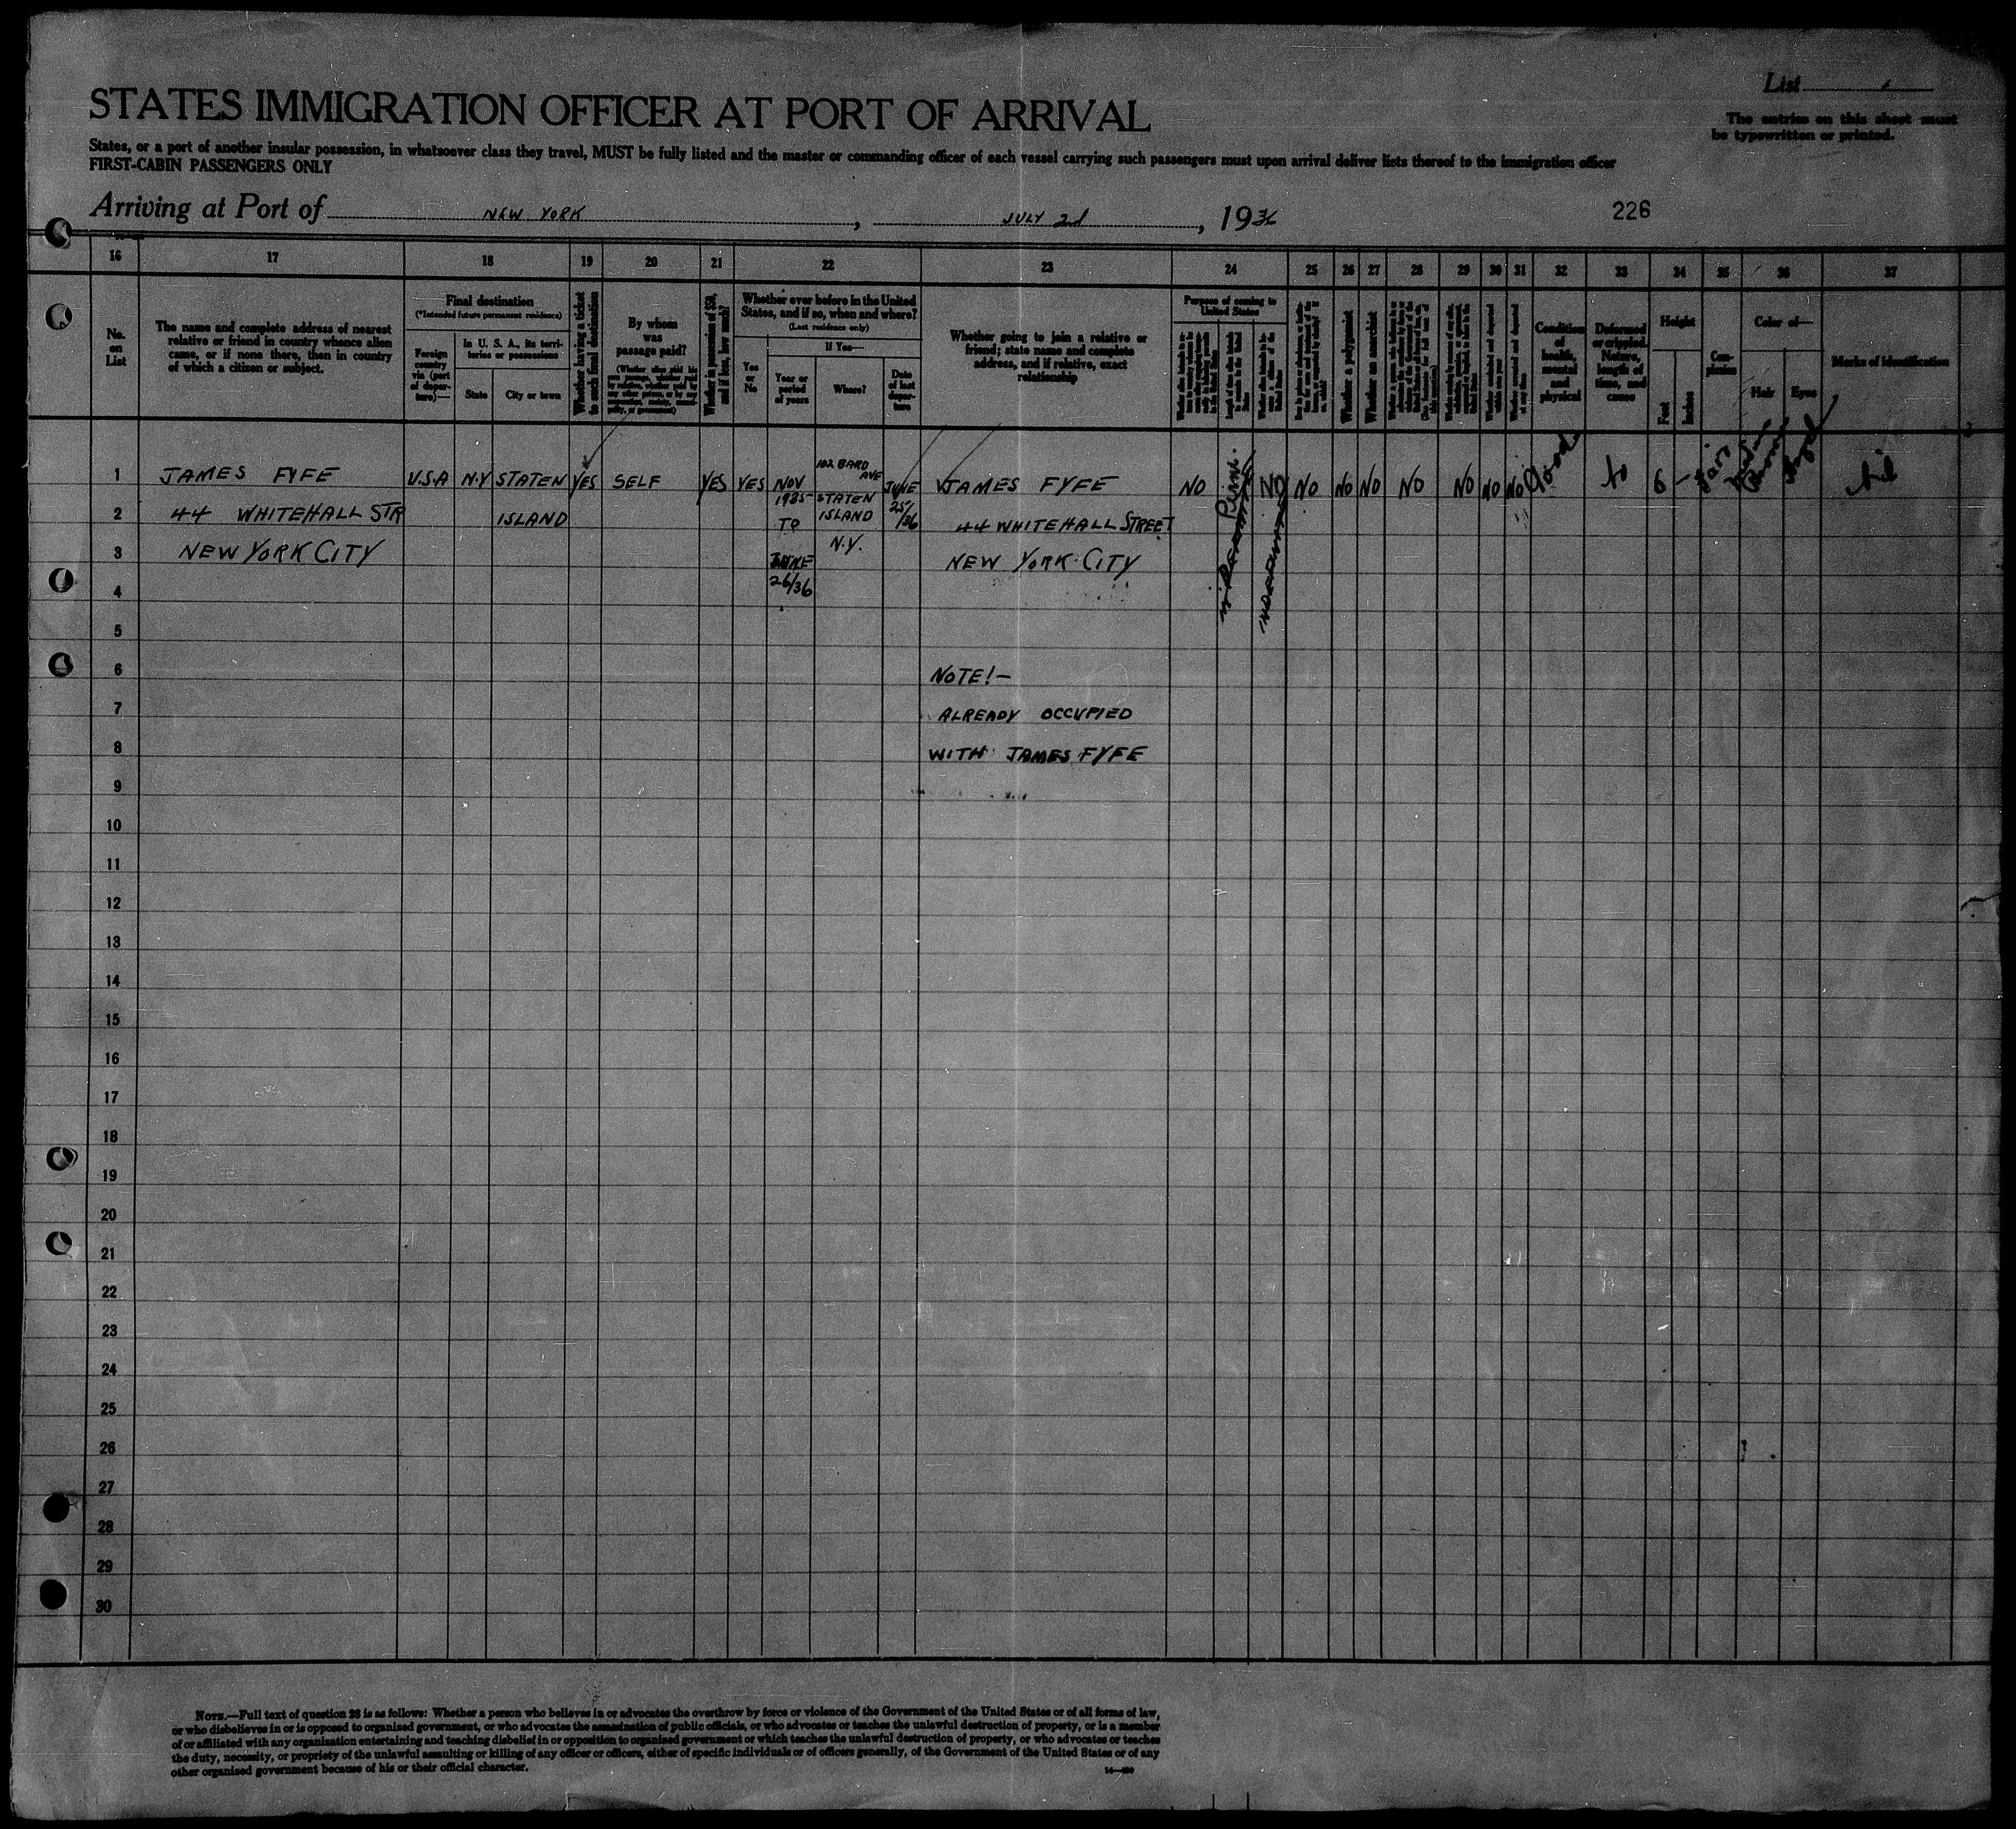 List
STATES IMMIGRATION OFFICER AT PORT OF ARRIVAL
The entries on this sheet must
be typewritten or printed.
States, or a port of another insular possession, in whatsoever class they travel, MUST be fully listed and the master or commanding officer of each vessel carrying such passengers must upon arrival deliver lists thereof to the immigration officer
FIRST-CABIN PASSENGERS ONLY
Arriving at Port of NEW YORK, JULY 2d, 1936
226
16 17 18 19 20 21 22 23 24 25 26 27 28 29 30 31 32 33 34 35 36 37
No. on List
The name and complete address of nearest
relative or friend in country whence alien
came, or if none there, then in country
of which a citizen or subject.
Final destination
(*Intended future permanent residence)
Foreign country via (port of departure)—
In U. S. A., its territories or possessions
State
City or town
Whether having a ticket to such final destination
By whom was passage paid?
Whether in possession of $50, and if less, how much?
Whether ever before in the United
States, and if so, when and where?
(Last residence only)
Yes or No
If Yes—
Year or period of years
Where?
Date of last departure
Whether going to join a relative or
friend; state name and complete
address, and if relative, exact
relationship
Purpose of coming to United States
Whether a polygamist
Whether an anarchist
Condition of health, mental and physical
Deformed or crippled. Nature, length of time, and cause
Height
Feet
Inches
Complexion
Color of—
Hair
Eyes
Marks of identification
1 JAMES FYFE U.S.A N.Y STATEN YES SELF YES YES NOV 102 BARD AVE JUNE JAMES FYFE NO Perm. NO NO NO NO NO NO NO NO Good No 6 – Fair Brown Hazel Nil
1935 STATEN 25/36
2 44 WHITEHALL STR ISLAND TO ISLAND 44 WHITEHALL STREET
3 NEW YORK CITY JUNE N.Y. NEW YORK CITY
4 26/36
5
6 NOTE!—
7 ALREADY OCCUPIED
8 WITH JAMES FYFE
9
10
11
12
13
14
15
16
17
18
19
20
21
22
23
24
25
26
27
28
29
30
NOTE.—Full text of question 28 is as follows: Whether a person who believes in or advocates the overthrow by force or violence of the Government of the United States or of all forms of law,
or who disbelieves in or is opposed to organised government, or who advocates the assassination of public officials, or who advocates or teaches the unlawful destruction of property, or is a member
of or affiliated with any organisation entertaining and teaching disbelief in or opposition to organised government or which teaches the unlawful destruction of property, or who advocates or teaches
the duty, necessity, or propriety of the unlawful assaulting or killing of any officer or officers, either of specific individuals or of officers generally, of the Government of the United States or of any
other organised government because of his or their official character.